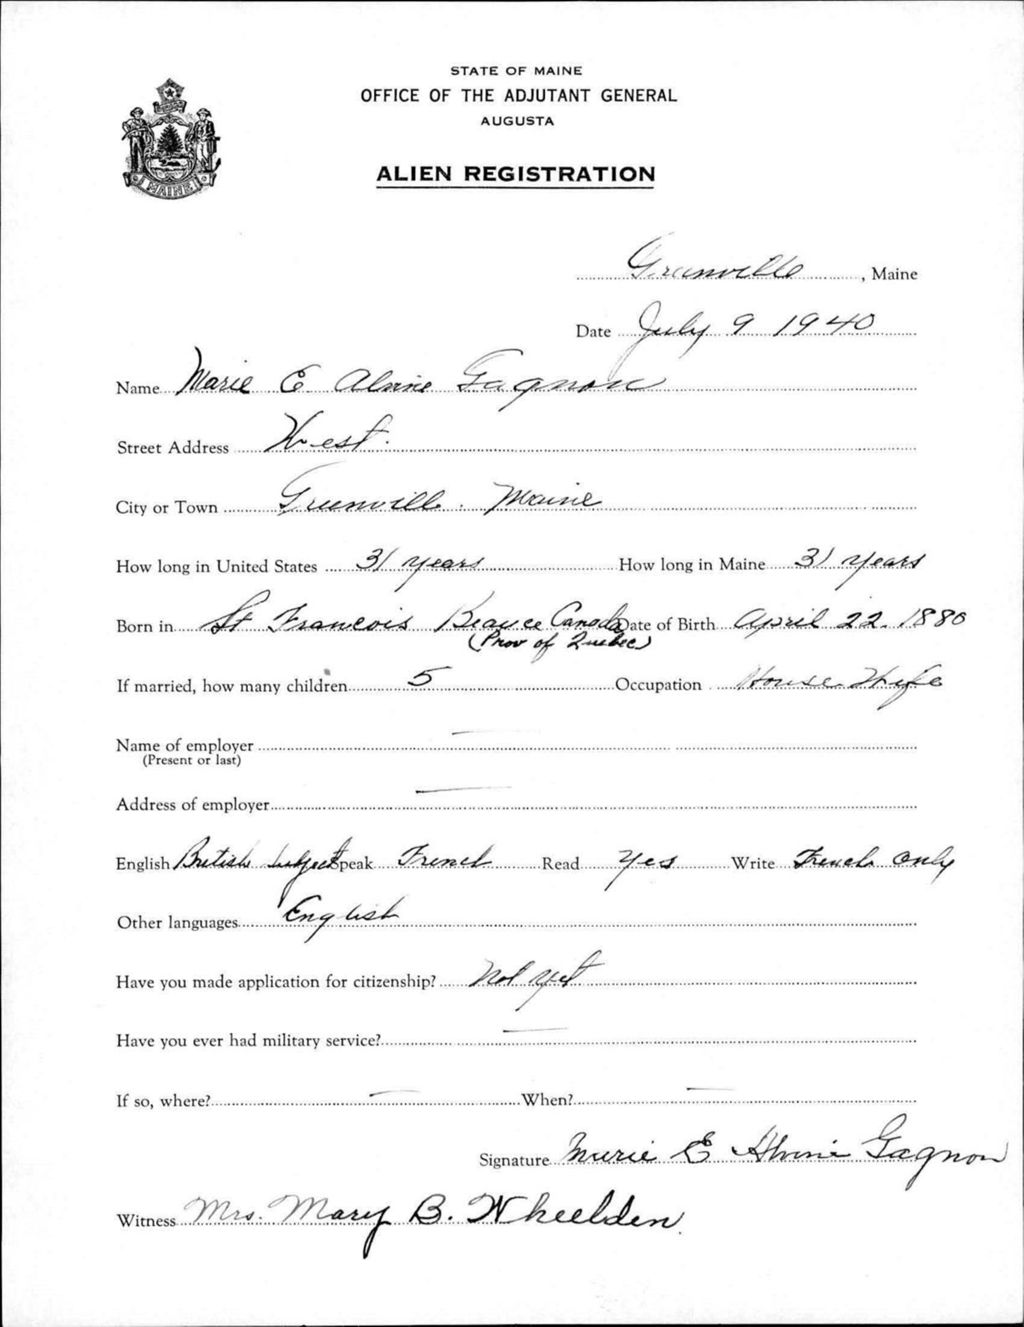 STATE OF MAINE
OFFICE OF THE ADJUTANT GENERAL
AUGUSTA
ALIEN REGISTRATION
MAINE
Greenville, Maine
Date July 9 1940
Name Marie E Alvine Gagnon
Street Address West.
City or Town Greenville. Maine
How long in United States 31 years How long in Maine 31 years
Born in St Francois Beauce Canada Date of Birth April 22. 1880
(Prov of Quebec)
If married, how many children 5 Occupation House Wife
Name of employer —
(Present or last)
Address of employer —
English British subject Speak French Read Yes Write French only
Other languages English
Have you made application for citizenship? Not yet
Have you ever had military service? —
If so, where? — When? —
Signature Marie E Alvine Gagnon
Witness Mrs. Mary B. Wheelden